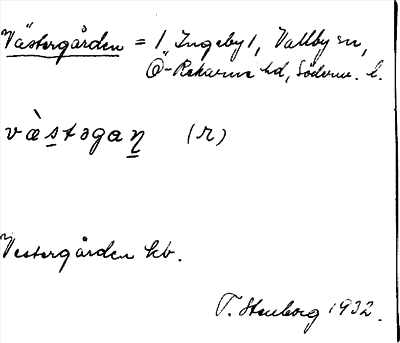 Västergården = 1 Ingeby 1, Vallby sn,
Ö-Rekarne hd, Söderm. l.
væ̀stəgaṉ (r)
Vestergården kb.
T. Stenborg 1932.